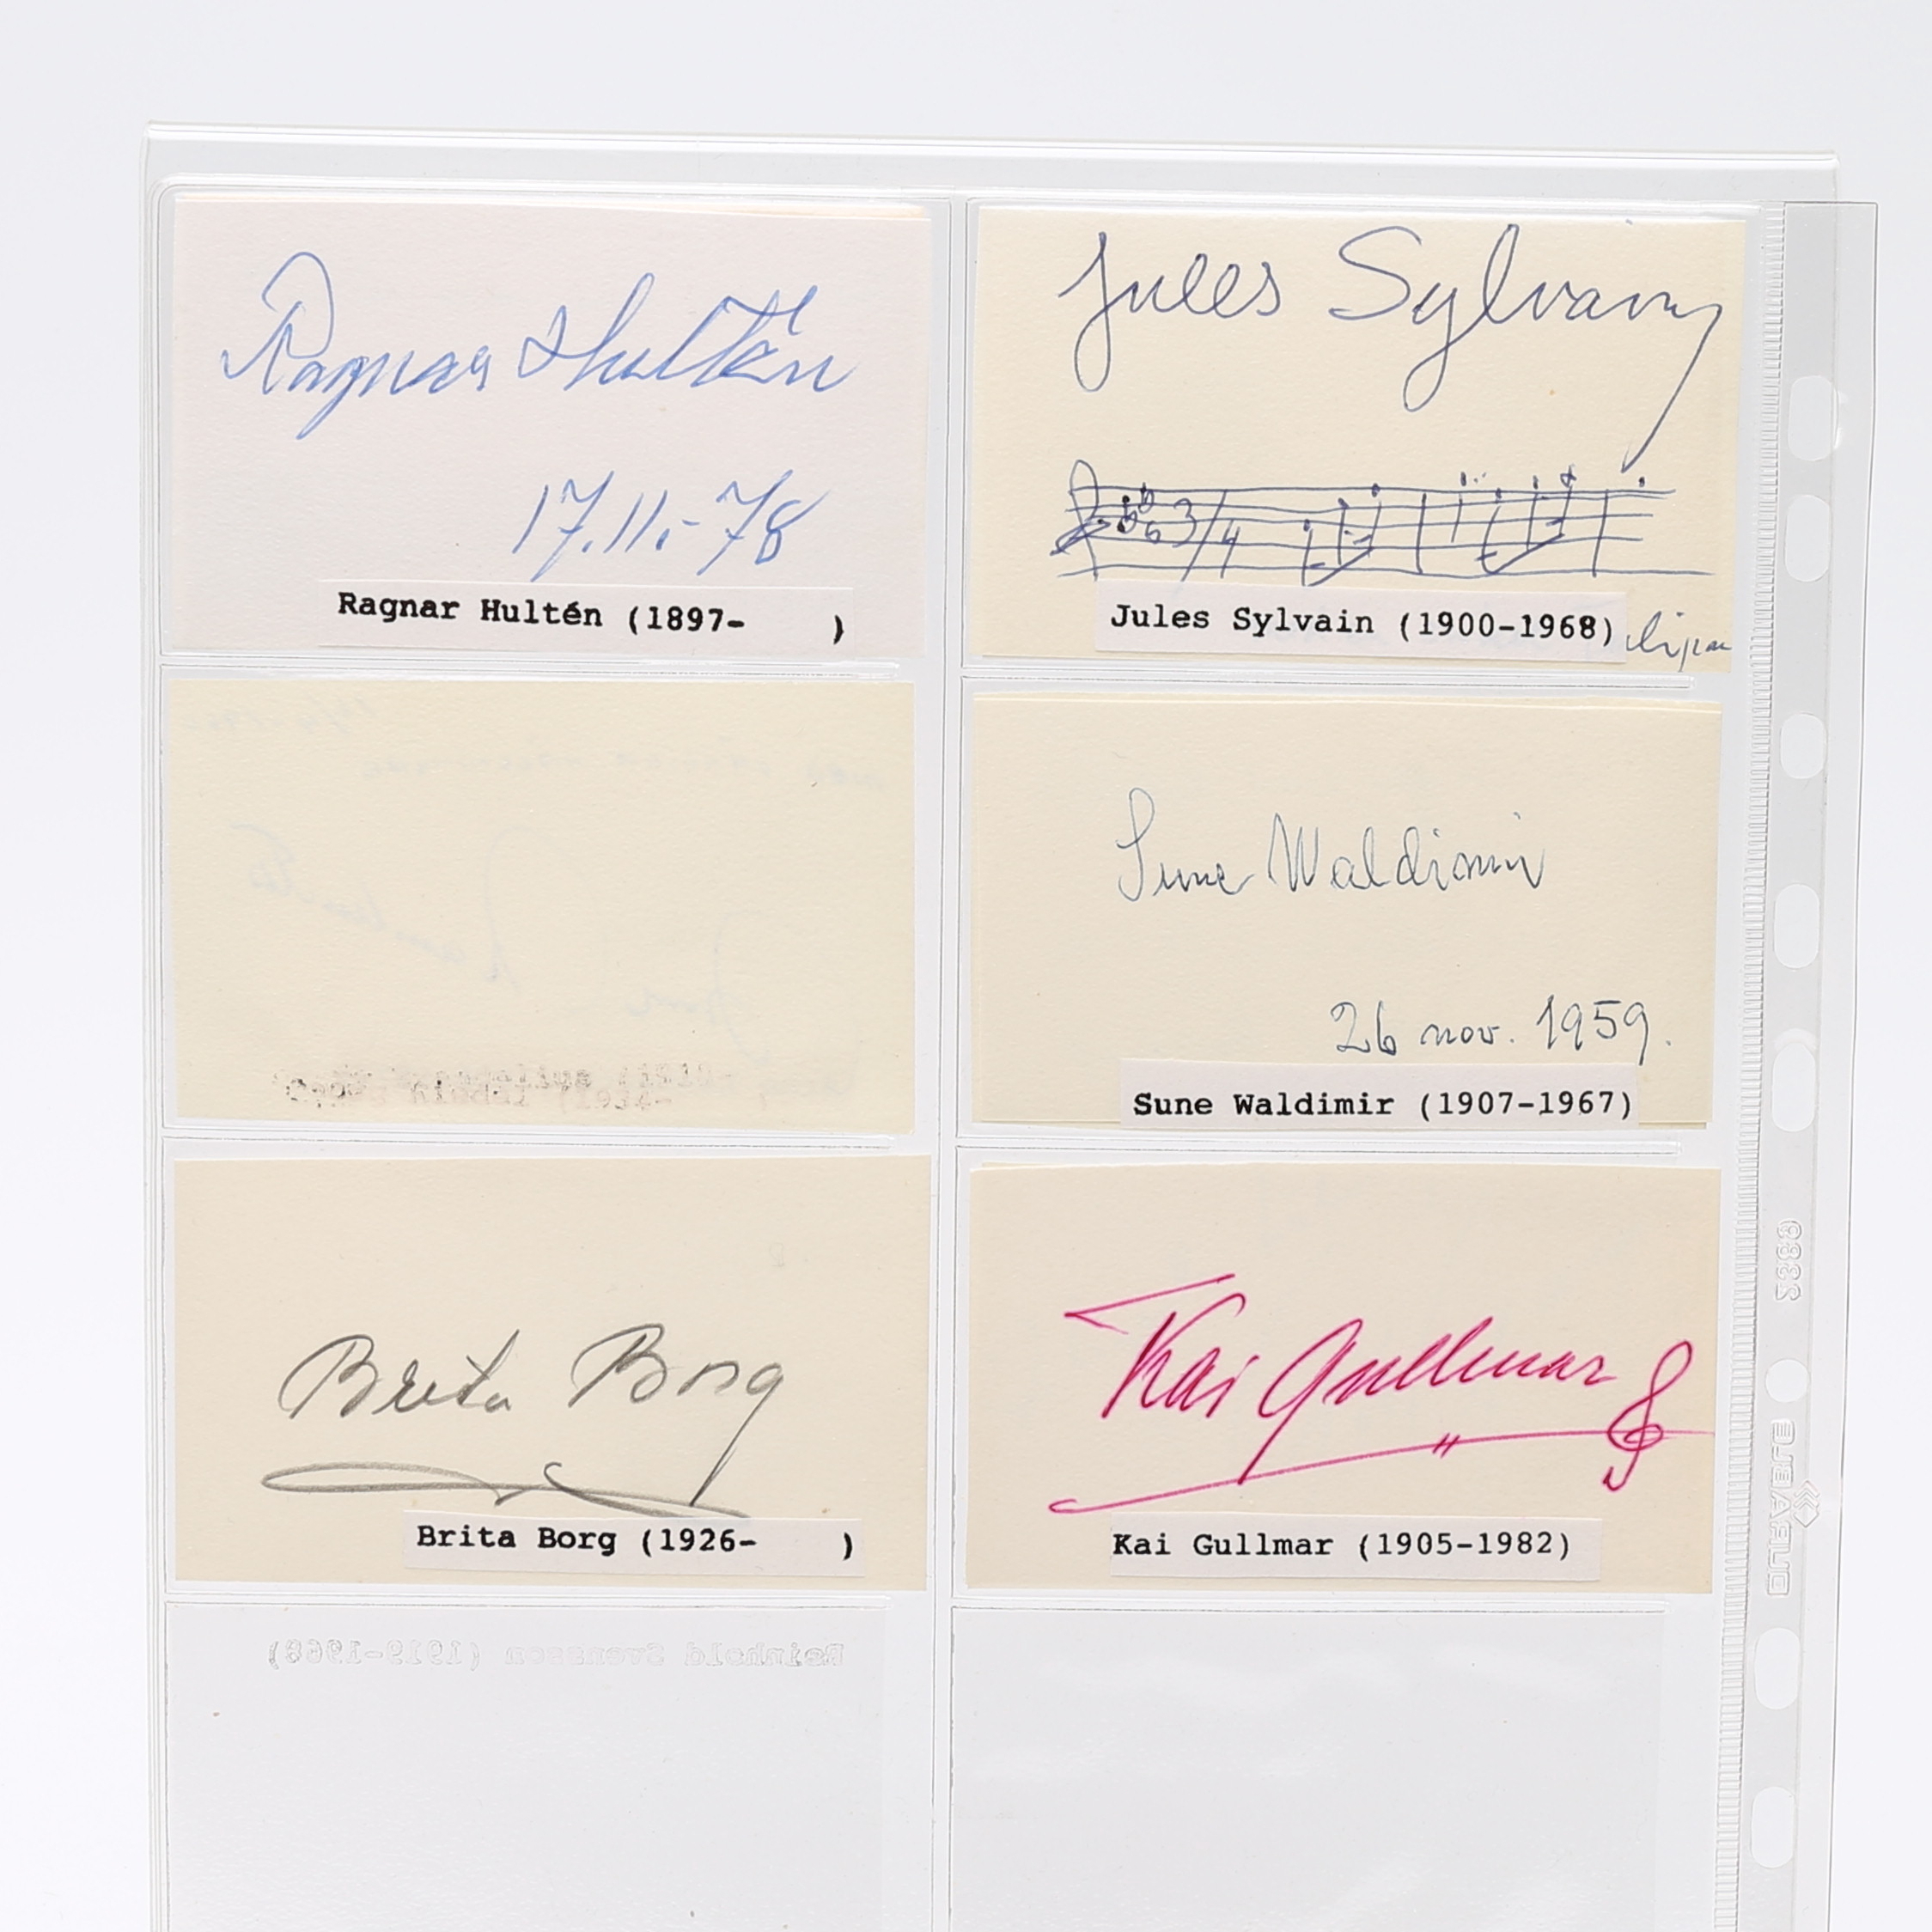 Ragnar Hultén
17.11.-78
Ragnar Hultén (1897-    )
Jules Sylvain
3/4
Jules Sylvain (1900-1968)
Sune Waldimir
26 nov. 1959.
Sune Waldimir (1907-1967)
Brita Borg
Brita Borg (1926-    )
Kai Gullmar
Kai Gullmar (1905-1982)
Reinhold Svensson (1919-1968)
2338
DURABLE